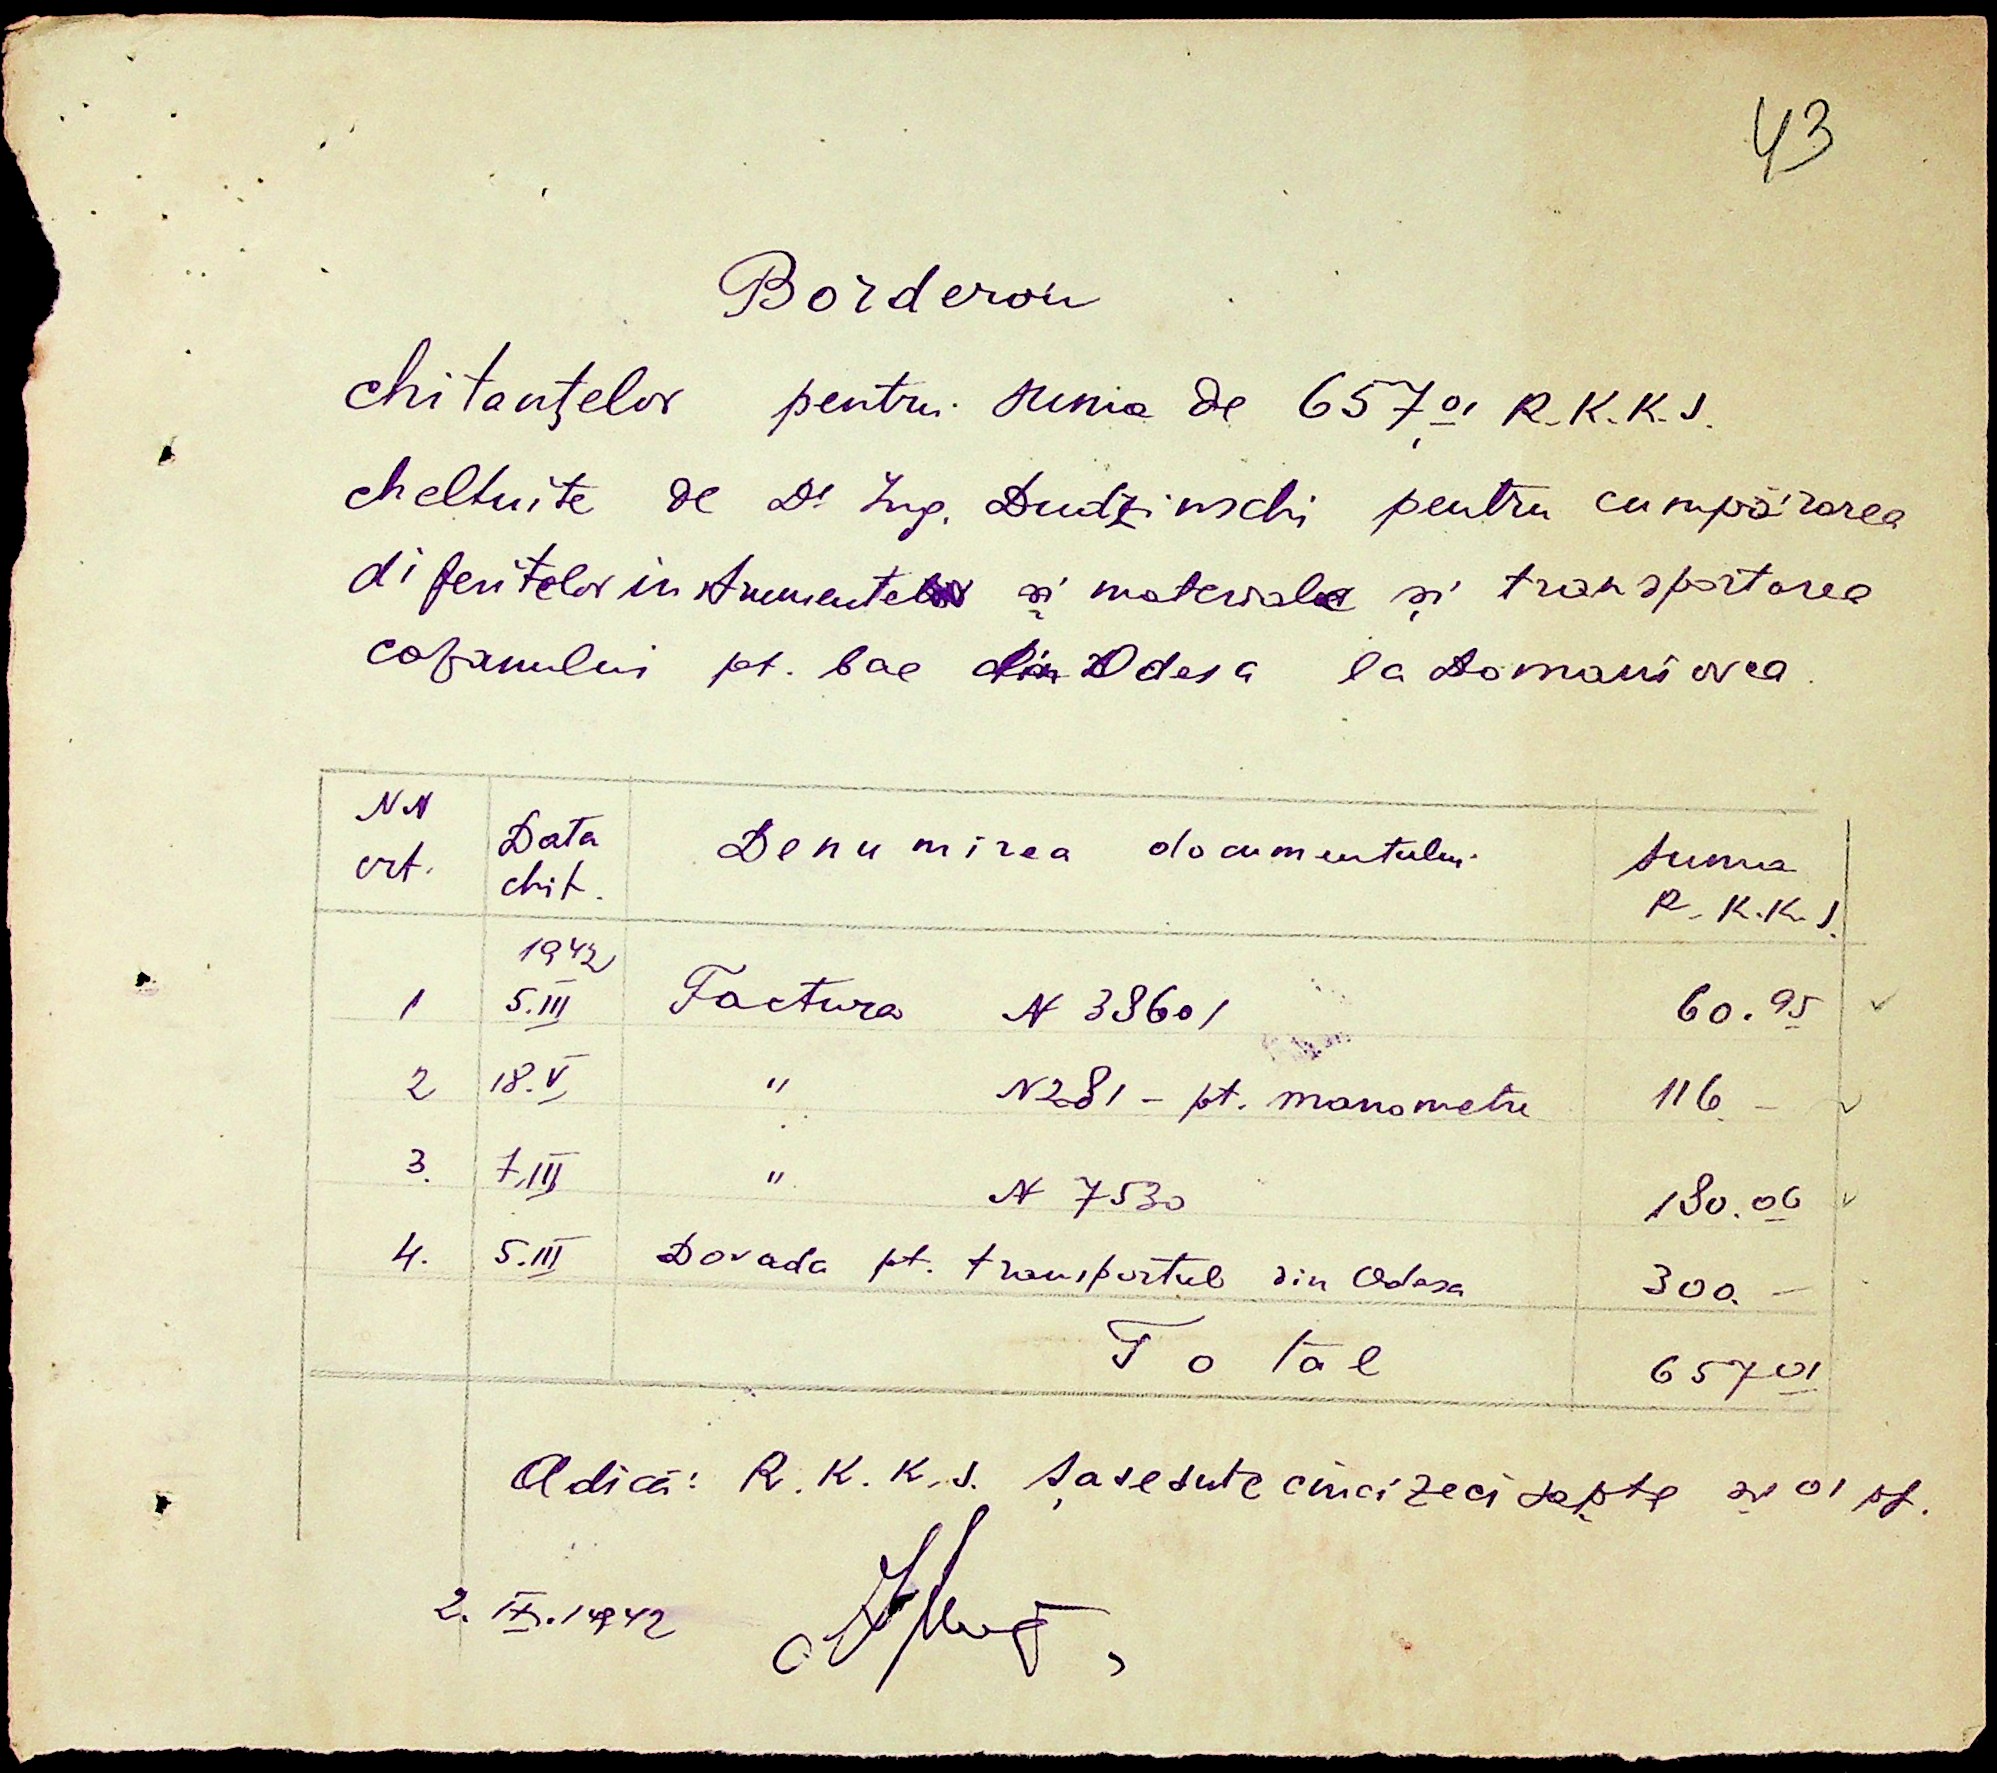 43
Borderou
chitanțelor pentru suma de 657,01 R.K.K.S.
cheltuite de Dl Ing. Dudzinschi pentru cumpărarea
diferitelor instrumente și materiale și transportarea
cazanului pt. bae din Odesa la Domaniovca.
NN crt. Data chit. Denumirea documentului Suma R.K.K.S.
1942
1 5.III Factura N 38601 60.95
2 18.V " N281 - pt. manometre 116.-
3. 7.III " N 7530 180.06
4. 5.III Dovada pt. transportul din Odesa 300.-
Total 657 01
Adică: R.K.K.S. șasesute cincizeci șapte și 01 pf.
2. IX.1942